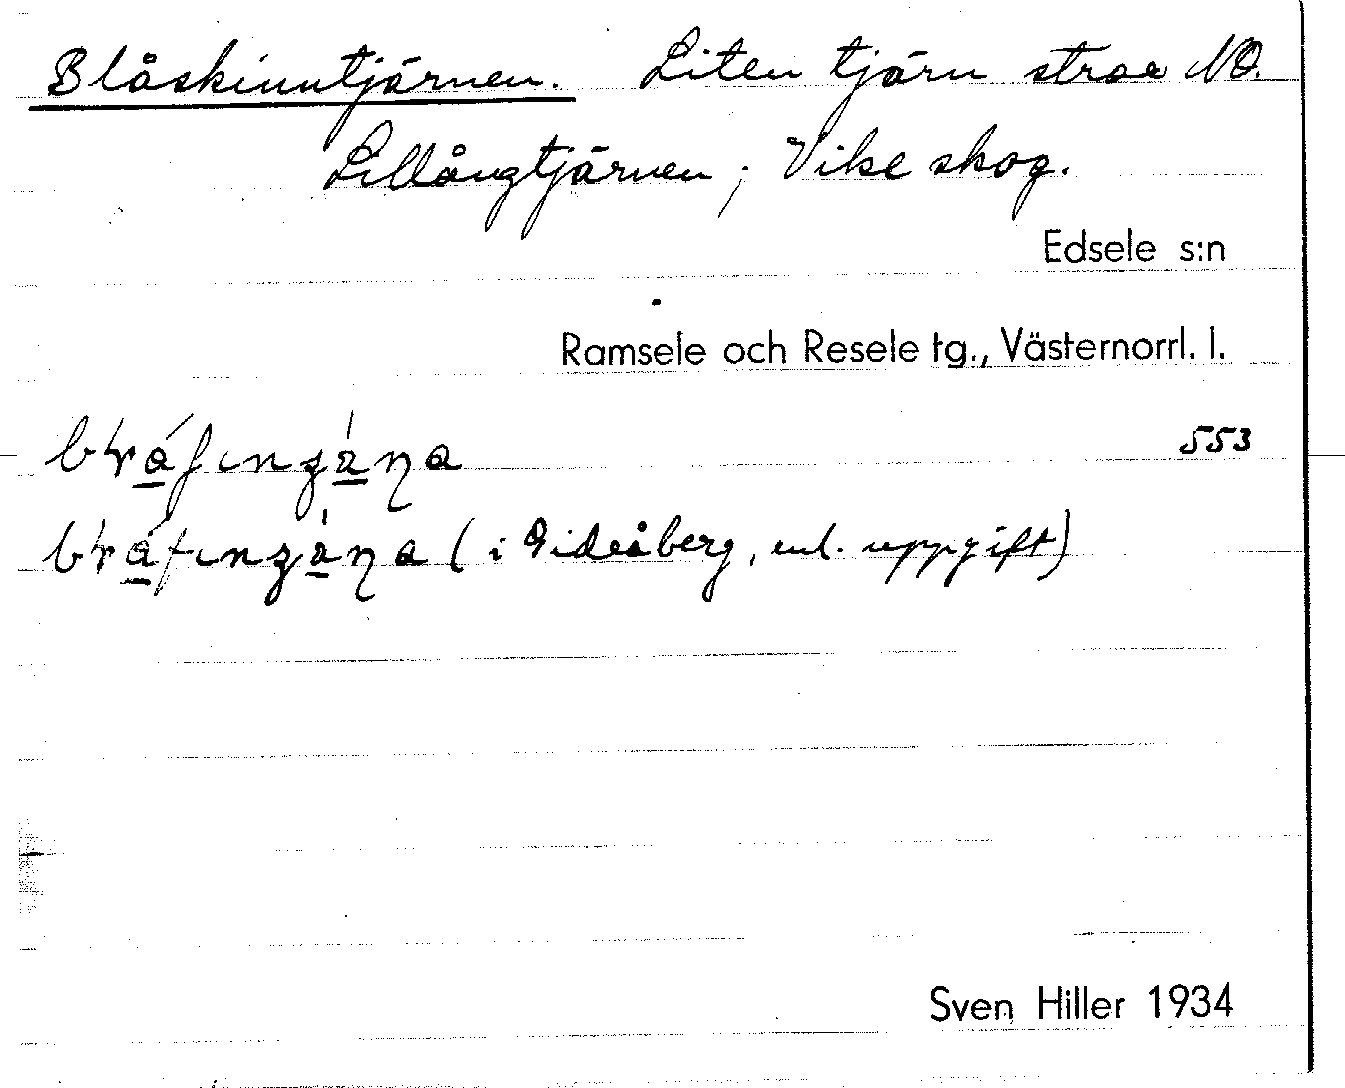 Blåskinntjärnen. Liten tjärn strax NO.
Lillångtjärnen; Vike skog.
Edsele s:n
Ramsele och Resele tg., Västernorrl. l.
553
(i Gideåberg, enl. uppgift)
Sven Hiller 1934